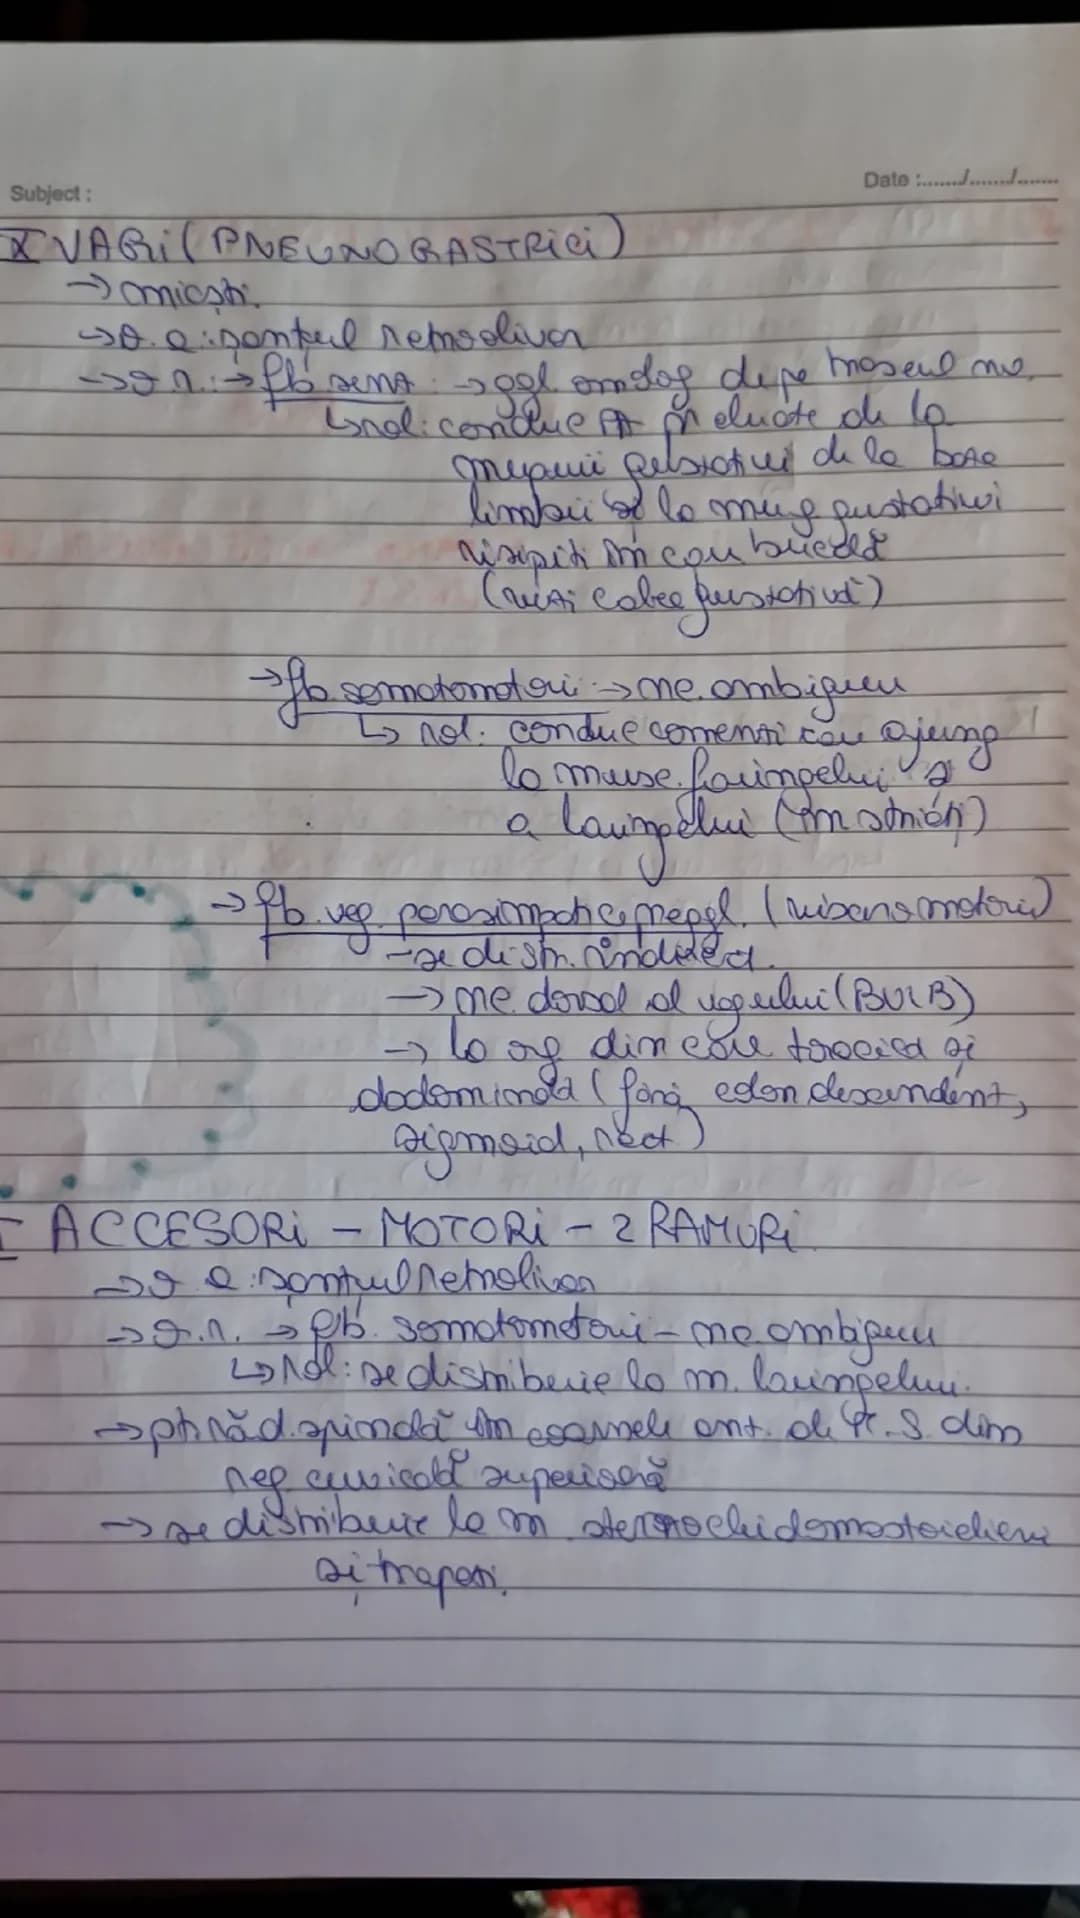 Subject :
Date :....../....../......
X VAGI (PNEUNOGASTRICI)
→ micști.
→ O. a: șanțul retroolivar
→ O. r.: → fb senz. → ggl. omolog de pe traseul nv.
↳ rol: conduc preluate de la
mugurii gustativi de la baza
limbii și la mug gustativi
risipiți în cav bucală
(gustativă)
→ fb. somatomotorii → nc. ambiguu
↳ rol: conduc comenzi care ajung
la musc. faringelui și
a laringelui (m striați)
→ fb. veg. parasimpatice preggl. (visceromotorii)
- se distr. indirect.
→ nc. dorsal al vagului (BULB)
→ la org din cav toracică și
abdominală (fără colon descendent,
sigmoid, rect)
ACCESORI - MOTORI - 2 RAMURI
→ O. a: șanțul retroolivar
→ O. r. → fb. somatomotorii - nc. ambiguu
↳ Rol: se distribuie la m. laringelui.
→ pt. răd. spinală în coarnele ant. din
reg. cervicală superioară
→ se distribuie la m sternocleidomastoidieni
și trapezi.